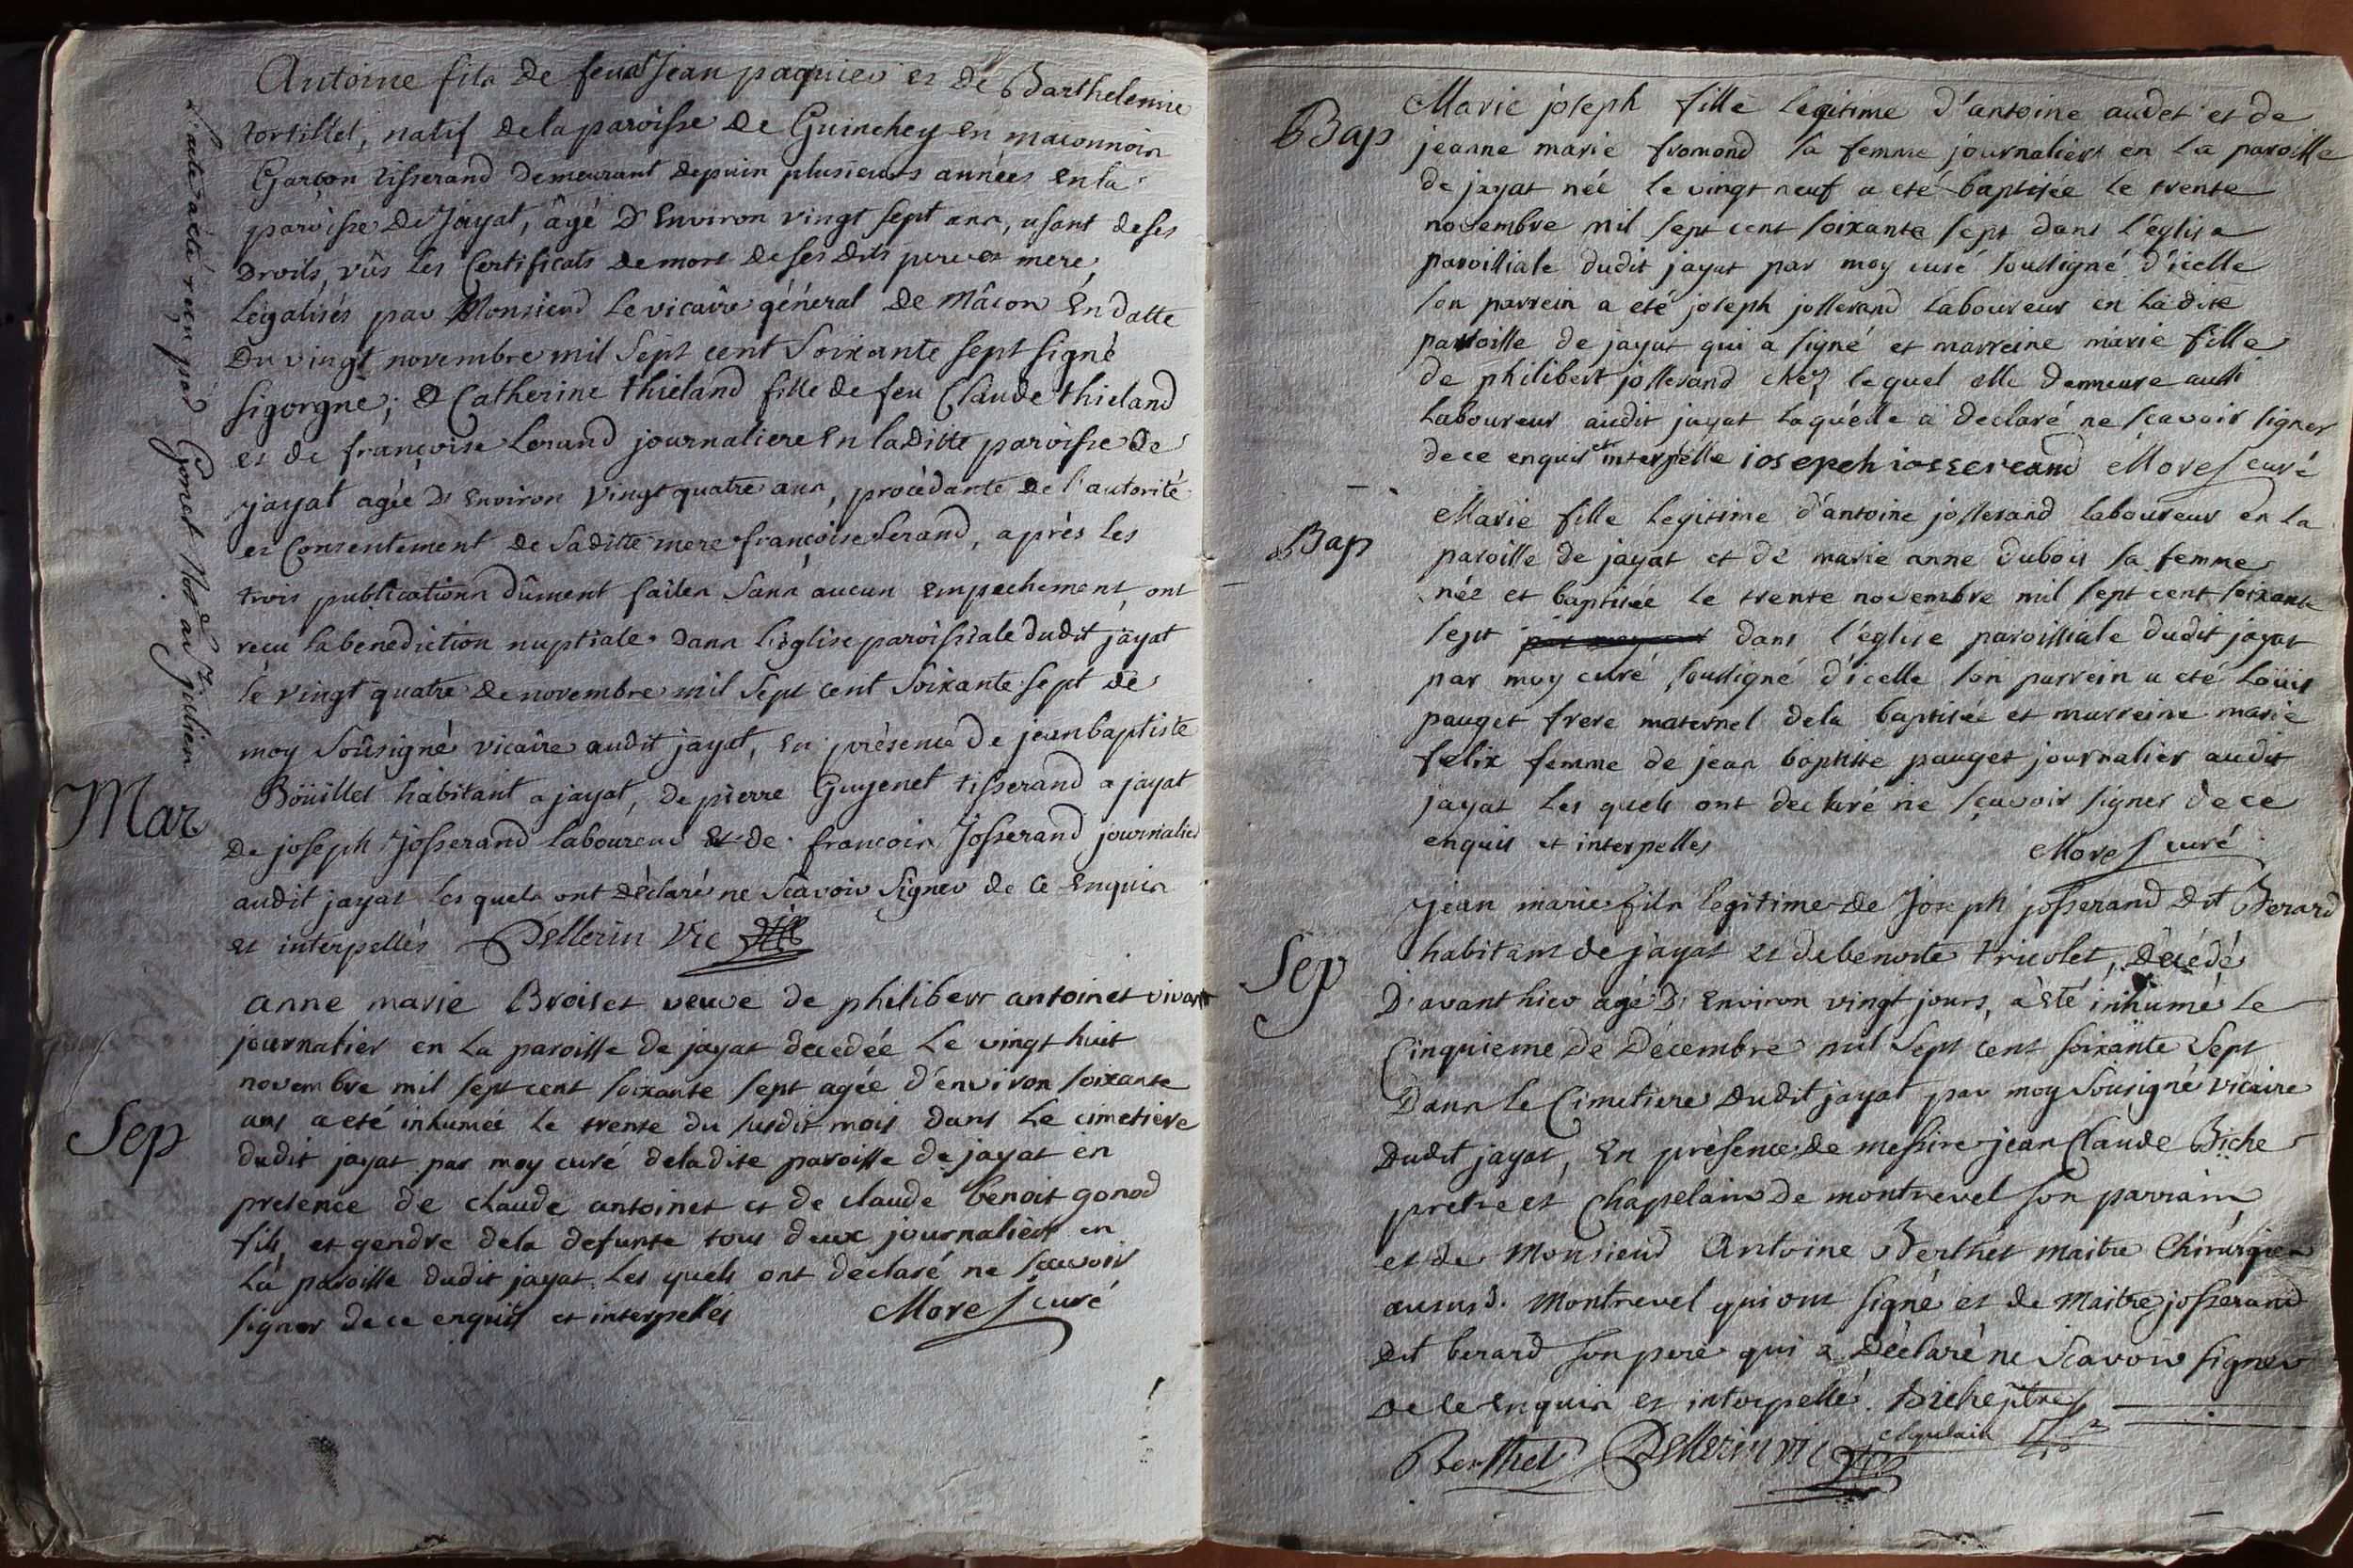 Antoine fils de feu Jean paquier et de Barthelemie
tortillet, natif de la paroisse de Guinchey en maconnois
Garçon tisserand demeurant depuis plusieurs années en la
paroisse de Jayat, âgé d'Environ vingt sept ans, usant de ses
Droits, vûs les Certificats de mort de ses dits pere et mere,
Légalisés par Monsieur le vicaire géneral de Mâcon En datte
Du vingt novembre mil Sept cent Soixante sept signé
sigorgne; & Catherine thieland fille de feu Claude thieland
et de françoise Lerand journaliere En la Ditte paroisse de
jayat agée d'Environ Vingt quatre ans, procèdante de l'autorité
et Consentement de Saditte mere françoise Serand, après les
trois publications dûment faites Sans aucun Empechement, ont
reçu la benediction nuptiale dans l'église paroissiale dudit jayat
le vingt quatre de novembre mil Sept cent Soixante sept de
moy Soûsigné vicaire audit jayat, En présence de jean baptiste
Böüillet habitant a jayat, de pierre Guyenet tisserand a jayat
De joseph Josserand laboureur et de françois Josserand journalier
audit jayat les quels ont Déclaré ne Scavoir Signer de ce Enquis
et interpellés Pellerin Vic
Mar
L'autre acte reçu par Gomet Nore a St Julien
anne marie Broiset veuve de philibert antoinet vivant
journalier en La paroisse de jayat decedée Le vingt huit
novembre mil sept cent soixante sept agée d'environ soixante
ans a eté inhumée le trente du susdit mois dans Le cimetiere
dudit jayat par moy curé de ladite paroisse de jayat en
presence de claude antoinet et de claude benoit gonod
fils et gendre de la defunte tous deux journaliers en
La paroisse dudit jayat Les quels ont declaré ne scavoir
signer de ce enquis et interpellés Morel curé
Sep
Bap
Marie joseph fille legitime d'antoine audet et de
jeanne marie fromond sa femme journaliers en La paroisse
de jayat née le vingt neuf a eté baptisée le trente
novembre mil sept cent soixante sept dans l'église
paroissiale dudit jayat par moy curé soussigné d'icelle
son parrein a eté joseph josserand Laboureur en Ladite
paroisse de jayat qui a signé et marreine marie fille
de philibert josserand chez lequel elle demeure aussi
Laboureur audit jayat laquelle a declaré ne scavoir signer
de ce enquis et interpelle iosepeh iossereand Morel curé
Bap
Marie fille legitime d'antoine josserand laboureur en La
paroisse de jayat et de marie anne dubois sa femme
née et baptisée le trente novembre mil sept cent soixante
sept dans l'église paroissiale dudit jayat
par moy curé soussigné d'icelle son parrein a eté Loüis
pauget frere maternel de la baptisée et marreine marie
felix femme de jean baptiste pauget journalier audit
jayat Les quels ont declaré ne sçavoir signer de ce
enquis et interpelles Morel curé
Sep
jean marie fils legitime de Joseph josserand dit Berard
habitant de jayat et de benoite tricolet, décédé
D'avant hier agé d'Environ vingt jours, à èté inhumé le
Cinquieme de Décembre mil Sept cent soixante Sept
Dans le Cimetiere dudit jayat par moy Sousigné vicaire
dudit jayat, En présence de messire jean Claude Biche
pretre et Chapelain de montrevel son parrain
et de Monsieur Antoine Berthet maitre Chirurgien
au susd. Montrevel qui ont signé et de Maitre josserand
dit berard son pere qui a Déclaré ne Scavoir signer
de ce Enquis et interpellé. Biche ptre
chapelain
Berthet Pellerin vic